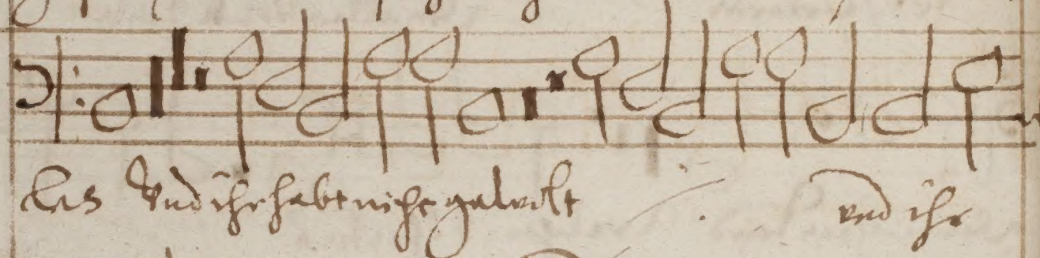 les Vnd ihr habt nicht gewolt ./. vnd ihr